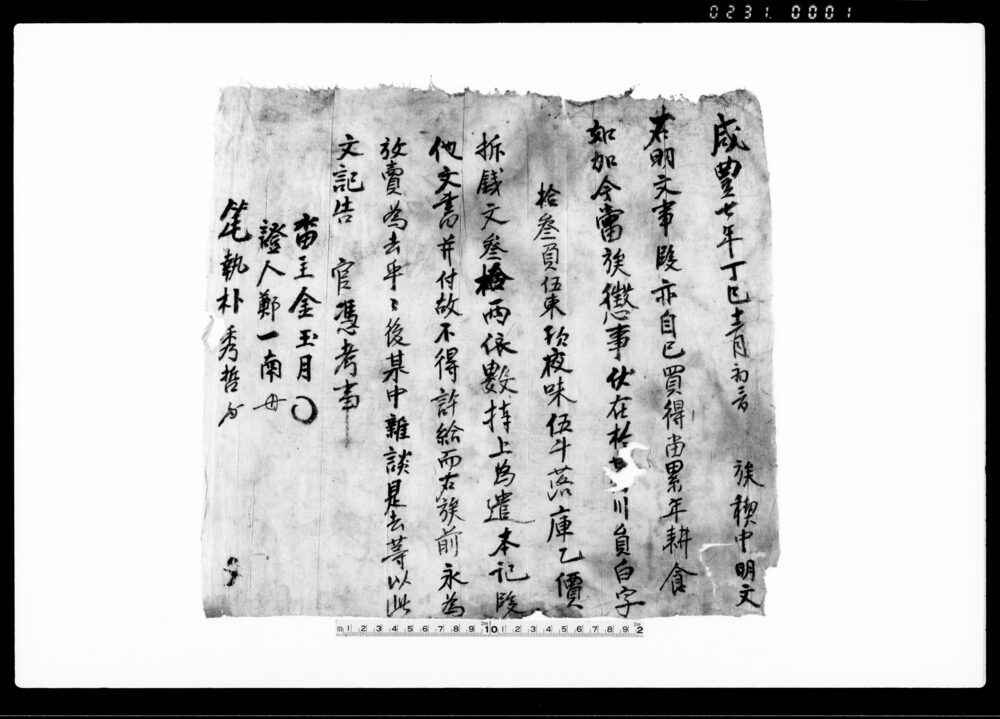 0231. 0001
咸豊七年丁巳十二月初三日 族稧中明文
右明文事段亦自己買得畓累年耕食
如加今當族徵事伏在於 川員白字
拾叁負伍束 夜味伍斗落庫乙價
折錢文叁拾兩依數捧上為遣本記段
他文書并付故不得許給而右族前永為
放賣為去乎乎後某中雜談是去等以此
文記告 官憑考事
畓主金玉月
證人鄭一南
筆執朴秀哲
1 2 3 4 5 6 7 8 9 10 1 2 3 4 5 6 7 8 9 2